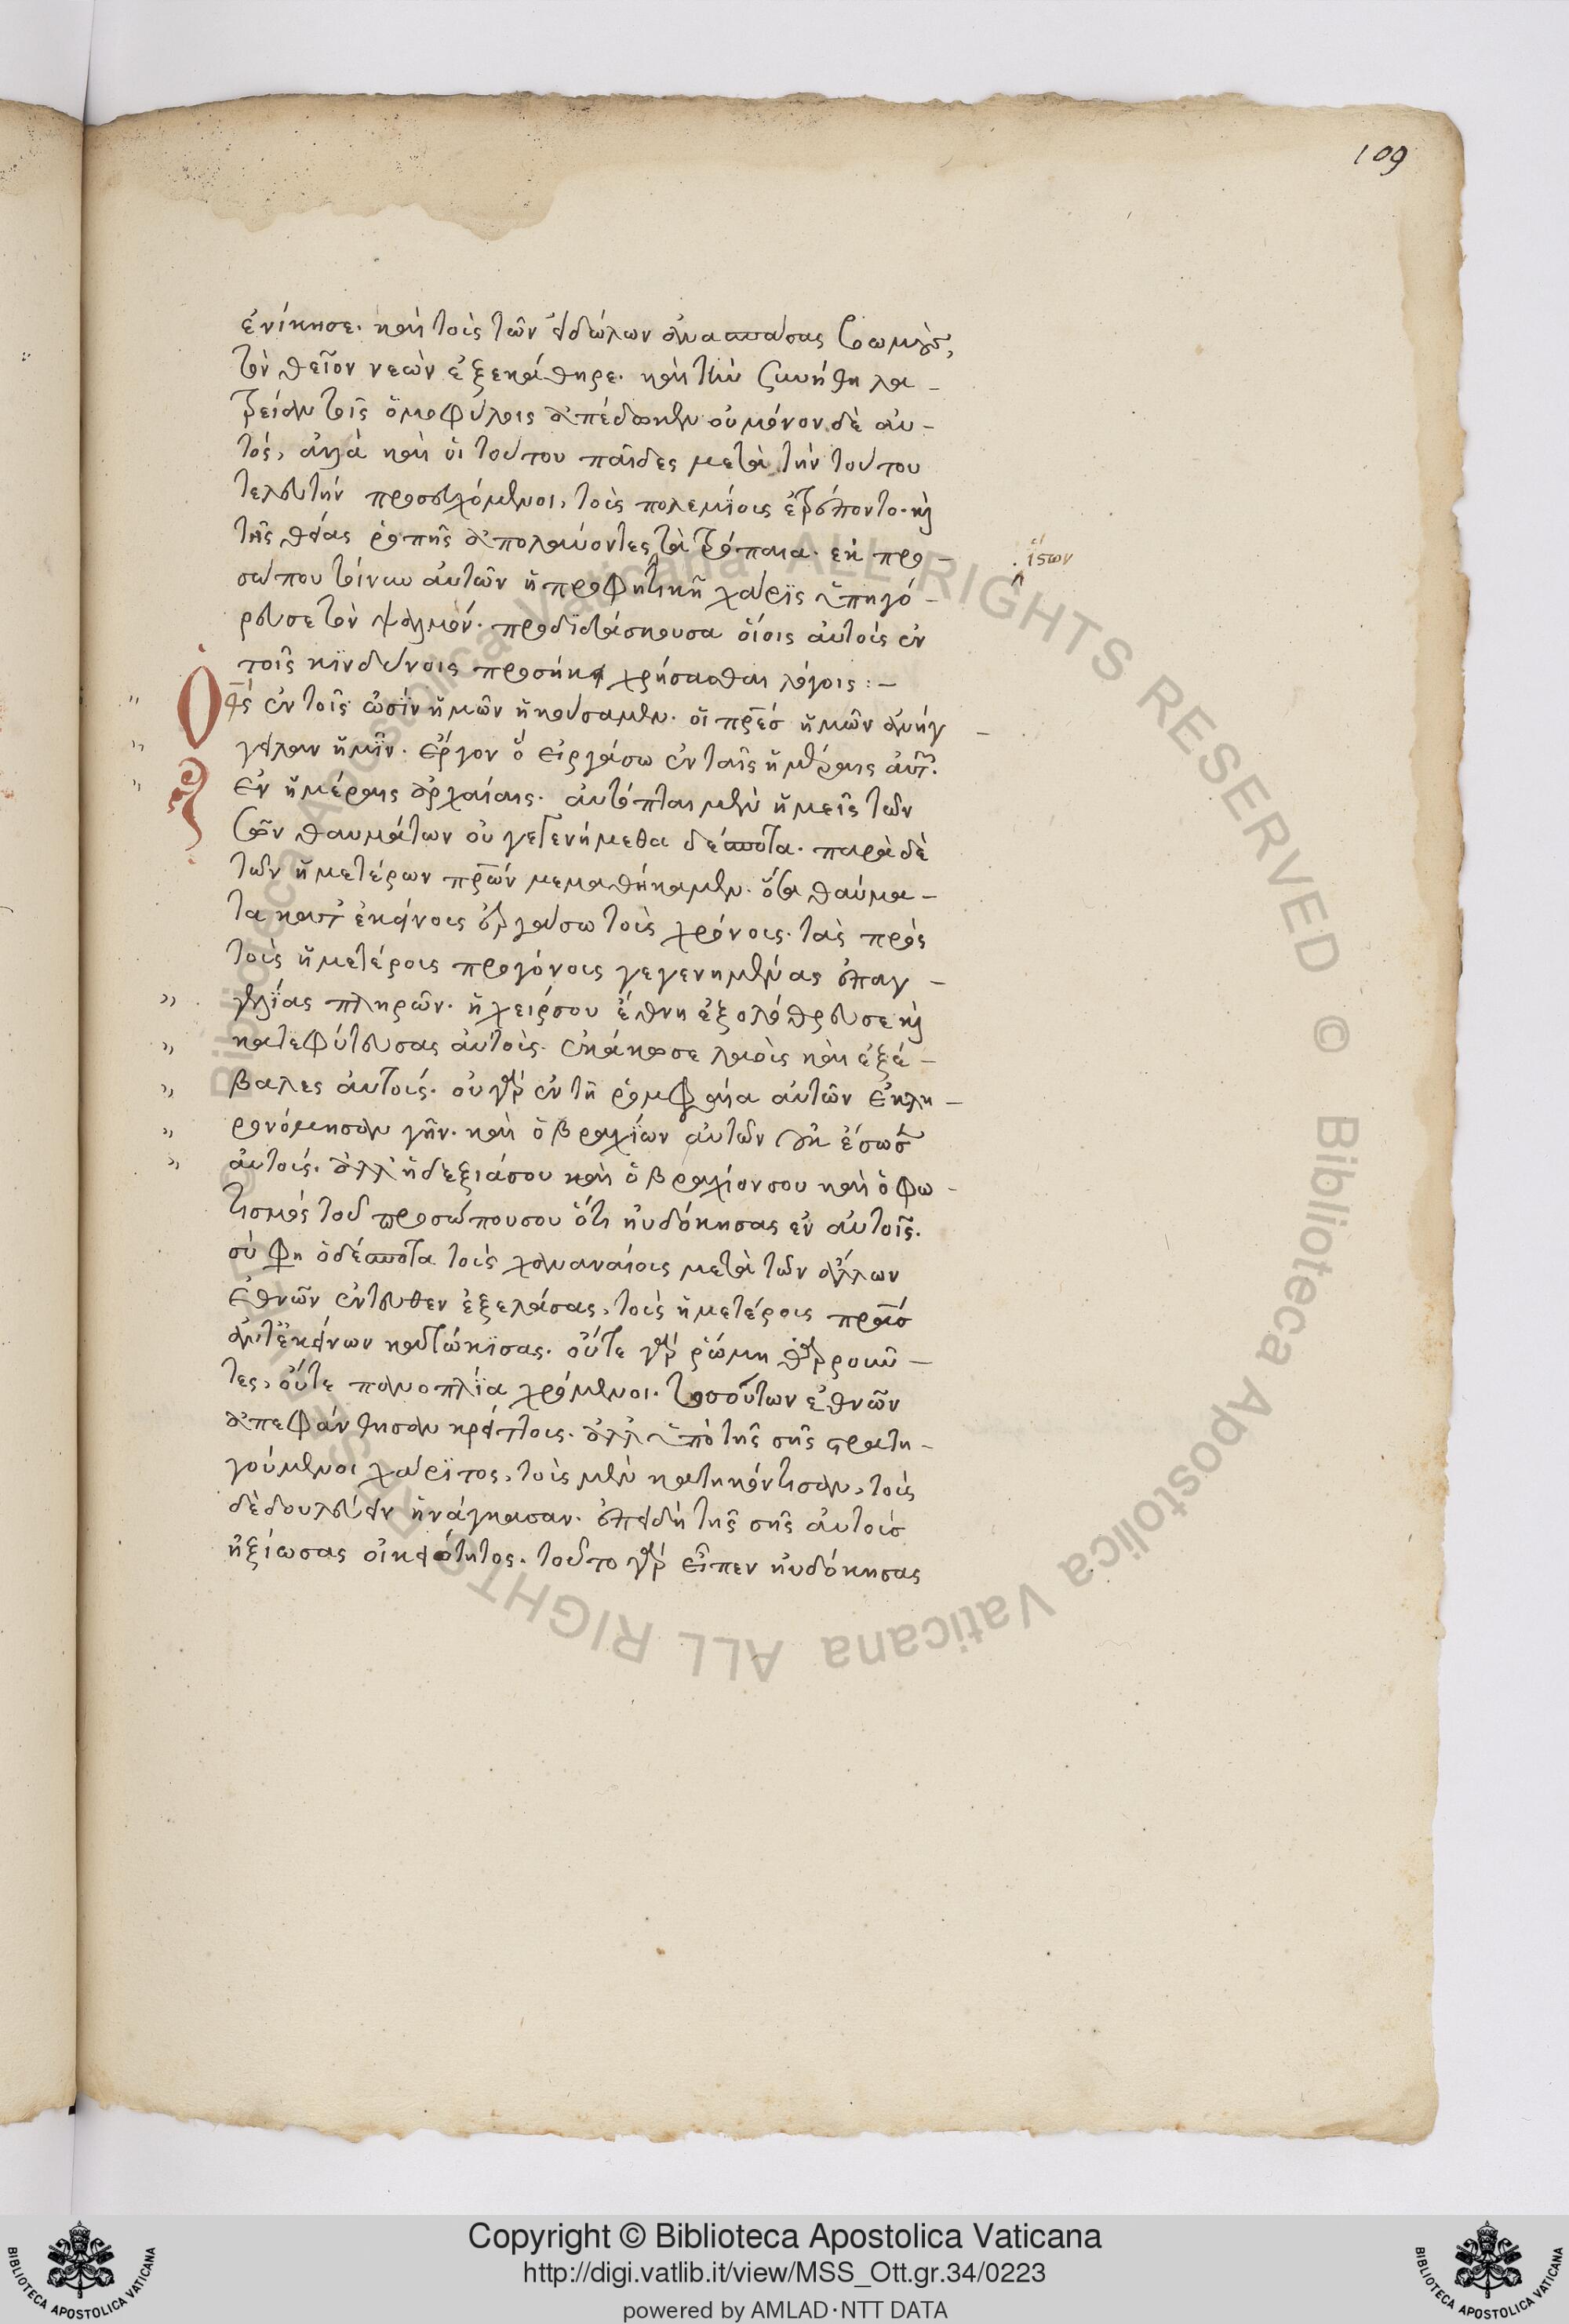 109
ἐνίκησε· καὶ τοὺς τῶν εἰδώλων ἀνασπάσας βωμοὺς,
τὸν θεῖον νεὼν ἐξεκάθηρε· καὶ τὴν συνήθη λα-
τρείαν τοῖς ὁμοφύλοις ἀπέδωκεν οὐ μόνον δὲ αὐ-
τός, ἀλλὰ καὶ οἱ τούτου παῖδες μετὰ τὴν τούτου
τελευτὴν προσευχόμενοι, τοὺς πολεμίους ἐτρέποντο· καὶ
τῆς θείας ῥοπῆς ἀπολαύοντες τὰ τρόπαια· ἐκ προ-
ἵστων
σώπου τοίνυν αὐτῶν ἡ προφητικὴ χάρις ὑπηγό-
ρευσε τὸν ψαλμόν· προδιδάσκουσα οἵοις αὐτοὺς ἐν
τοῖς κινδύνοις προσήκει χρήσασθαι λόγοις :-
Ὁ θς ἐν τοῖς ὠσὶν ἡμῶν ἠκούσαμεν· οἱ πρες ἡμῶν ἀνήγ-
γειλαν ἡμῖν· ἔργον ὃ εἰργάσω ἐν ταῖς ἡμέραις αὐτῶν·
ἐν ἡμέραις ἀρχαίαις· αὐτόπται μὲν ἡμεῖς τῶν
σῶν θαυμάτων οὐ γεγενήμεθα δέσποτα· παρὰ δὲ
τῶν ἡμετέρων πρων μεμαθήκαμεν· ὅσα θαύμα-
τα κατ' ἐκείνους εἰργάσω τοὺς χρόνους· τὰς πρὸς
τοὺς ἡμετέρους προγόνους γεγενημένας ἐπαγ-
γελίας πληρῶν· ἡ χείρ σου ἔθνη ἐξολόθρευσε καὶ
κατεφύτευσας αὐτοὺς· ἐκάκωσε λαοὺς καὶ ἐξέ-
βαλες αὐτούς· οὐ γὰρ ἐν τῇ ῥομφαία αὐτῶν ἐκλη-
ρονόμησαν γῆν· καὶ ὁ βραχίων αὐτῶν οὐκ ἔσωσεν
αὐτούς· ἀλλ' ἡ δεξιά σου καὶ ὁ βραχίον σου καὶ ὁ φω-
τισμός τοῦ προσώπου σου ὅτι ηὐδόκησας ἐν αὐτοῖς·
σύ φη ὁ δέσποτα τοὺς χαναναίους μετὰ τῶν ἄλλων
ἐθνῶν ἐντεῦθεν ἐξελάσας, τοὺς ἡμετέρους πρας
ἀντ' ἐκείνων κατώκισας· οὔτε γὰρ ῥώμη θαρροῦν-
τες, οὔτε πανοπλία χρώμενοι· τοσούτων ἐθνῶν
ἀπεφάνθησαν κρείττους· ἀλλ' ὑπὸ τῆς σῆς στρατη-
γούμενοι χάριτος, τοὺς μὲν κατηκόντισαν, τοὺς
δὲ δουλεύειν ἠνάγκασαν· ἐπειδὴ τῆς σῆς αὐτοὺς
ἠξίωσας οἰκειότητος· τοῦτο γὰρ εἶπεν ηὐδόκησας
Copyright © Biblioteca Apostolica Vaticana
http://digi.vatlib.it/view/MSS_Ott.gr.34/0223
powered by AMLAD·NTT DATA
BIBLIOTECA APOSTOLICA VATICANA
BIBLIOTECA APOSTOLICA VATICANA
© Biblioteca Apostolica Vaticana ALL RIGHTS RESERVED © Biblioteca Apostolica Vaticana ALL RIGHTS RESERVED